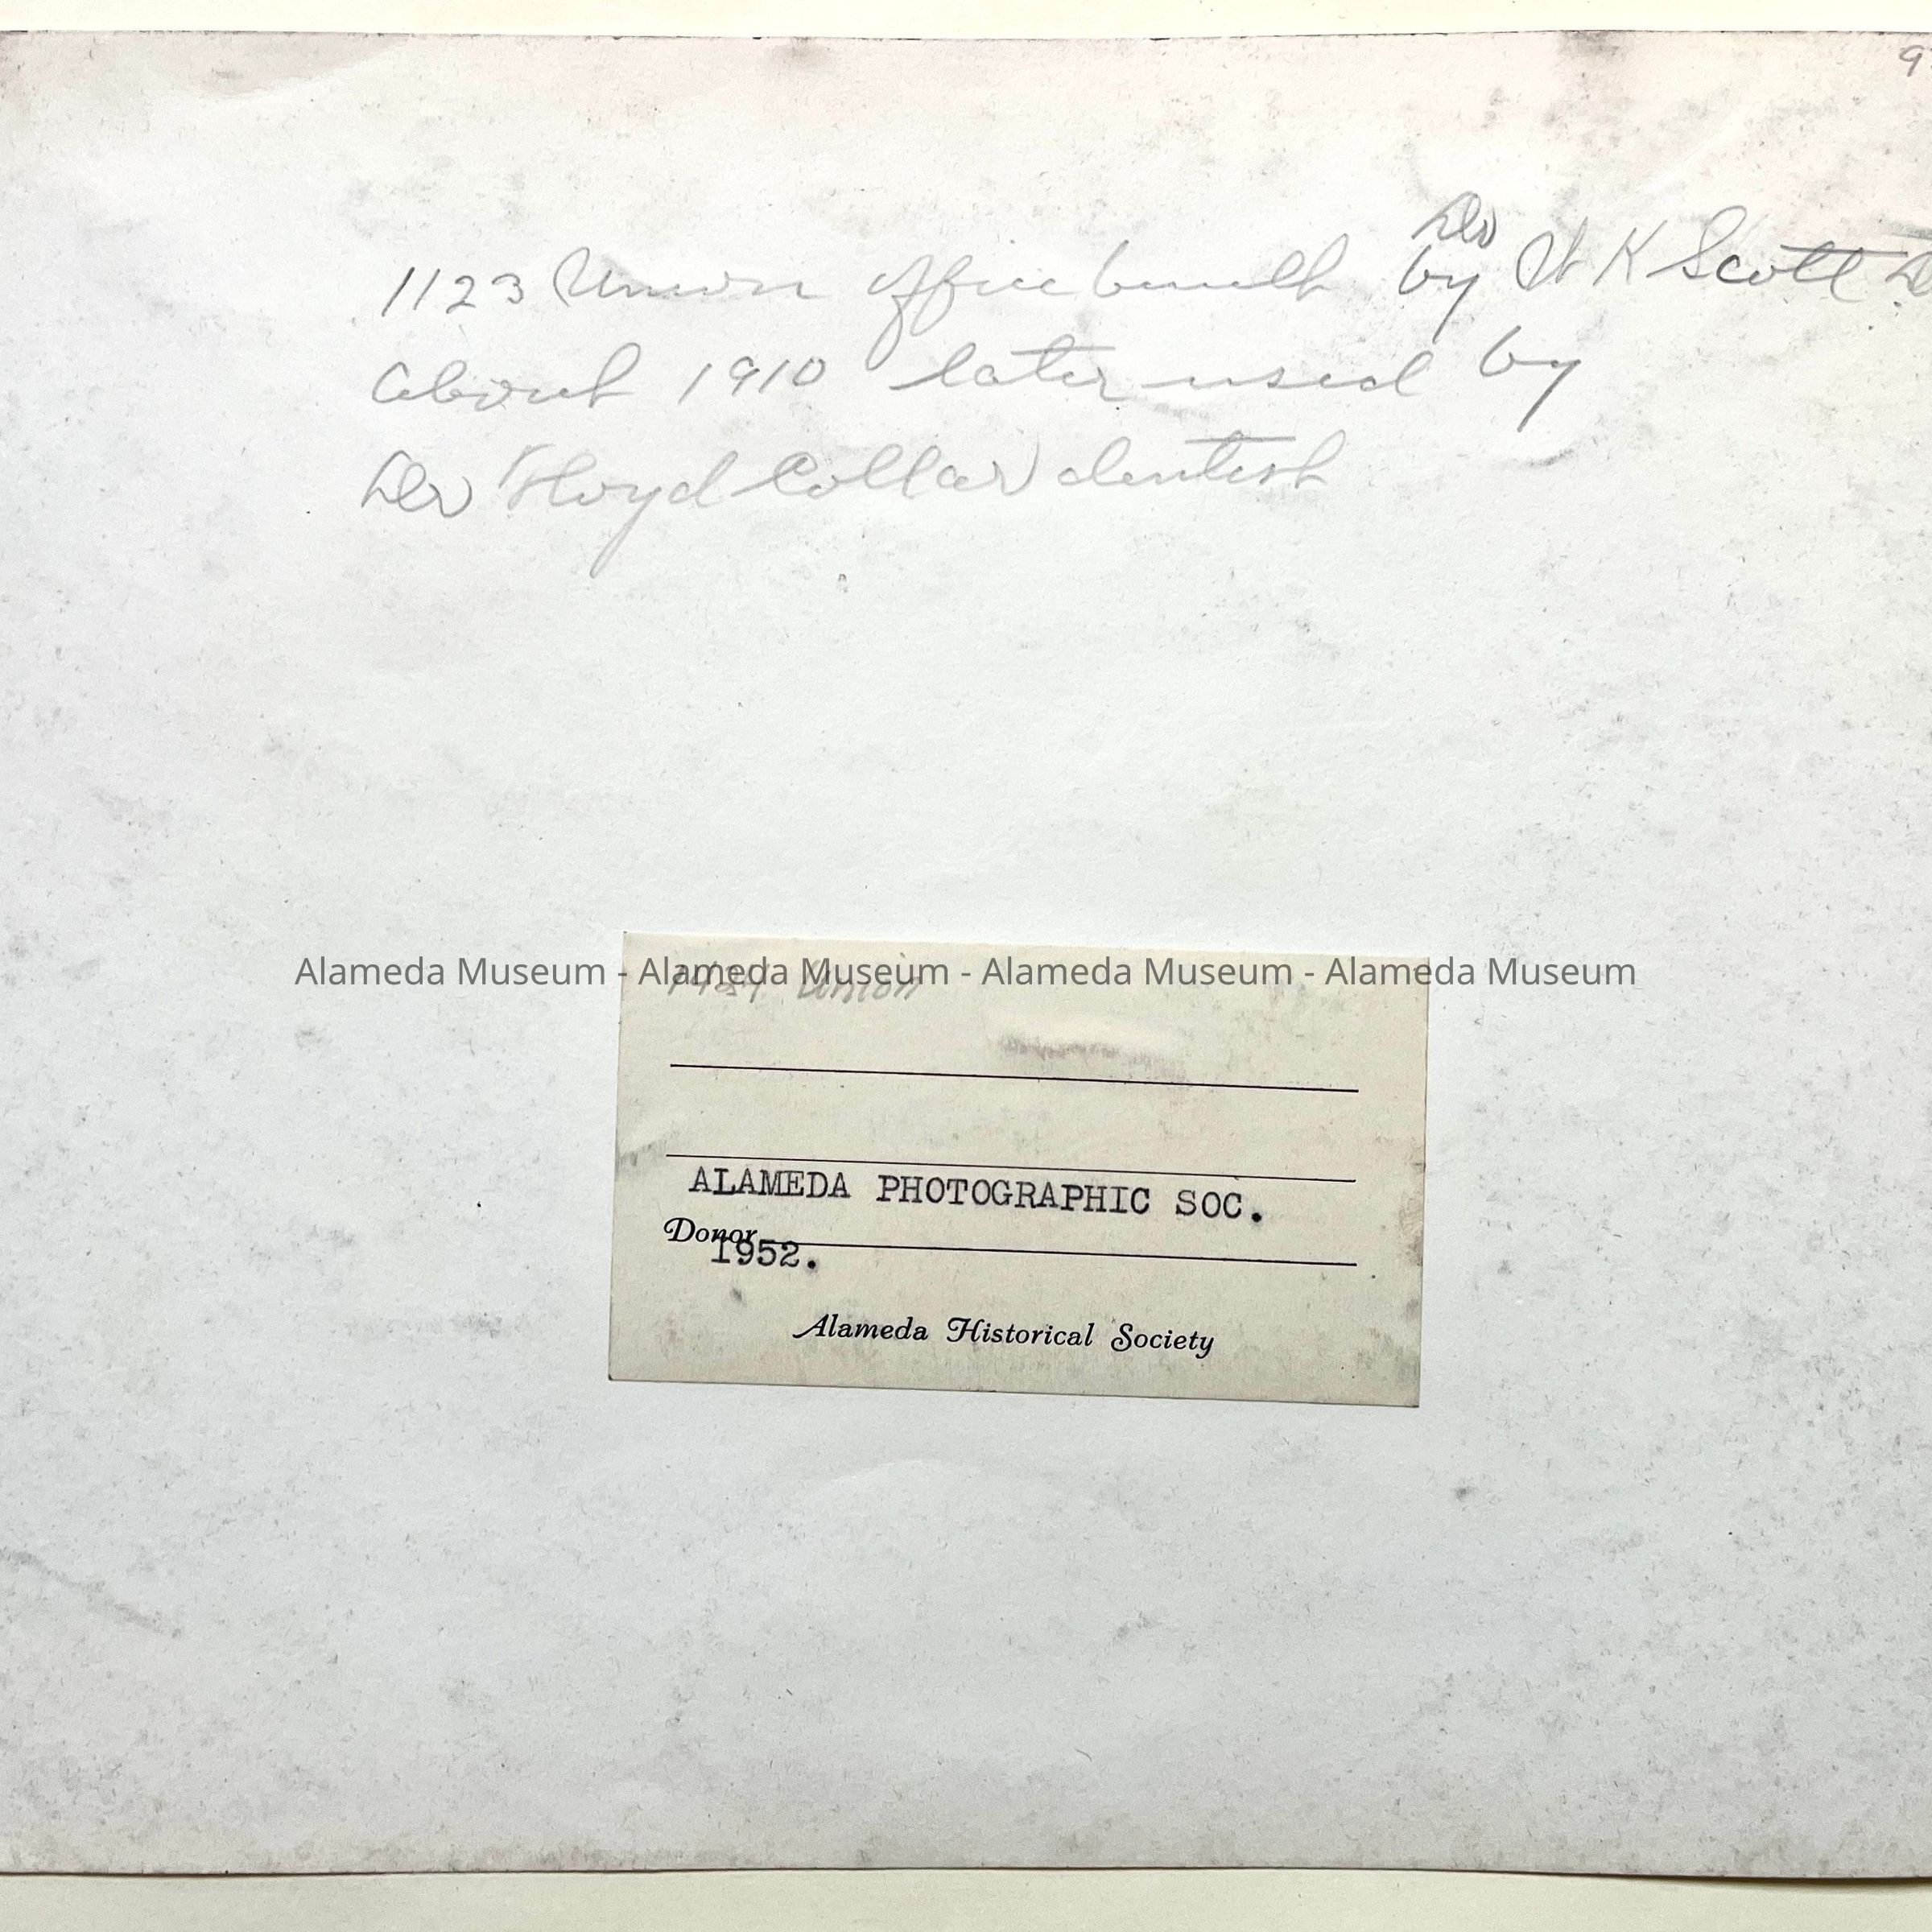 9
Dr
1123 Union office built by W K Scott
about 1910 later used by
Dr Floyd Collar dentist
Alameda Museum - Alameda Museum - Alameda Museum - Alameda Museum
Union
ALAMEDA PHOTOGRAPHIC SOC.
Donor
1952.
Alameda Historical Society